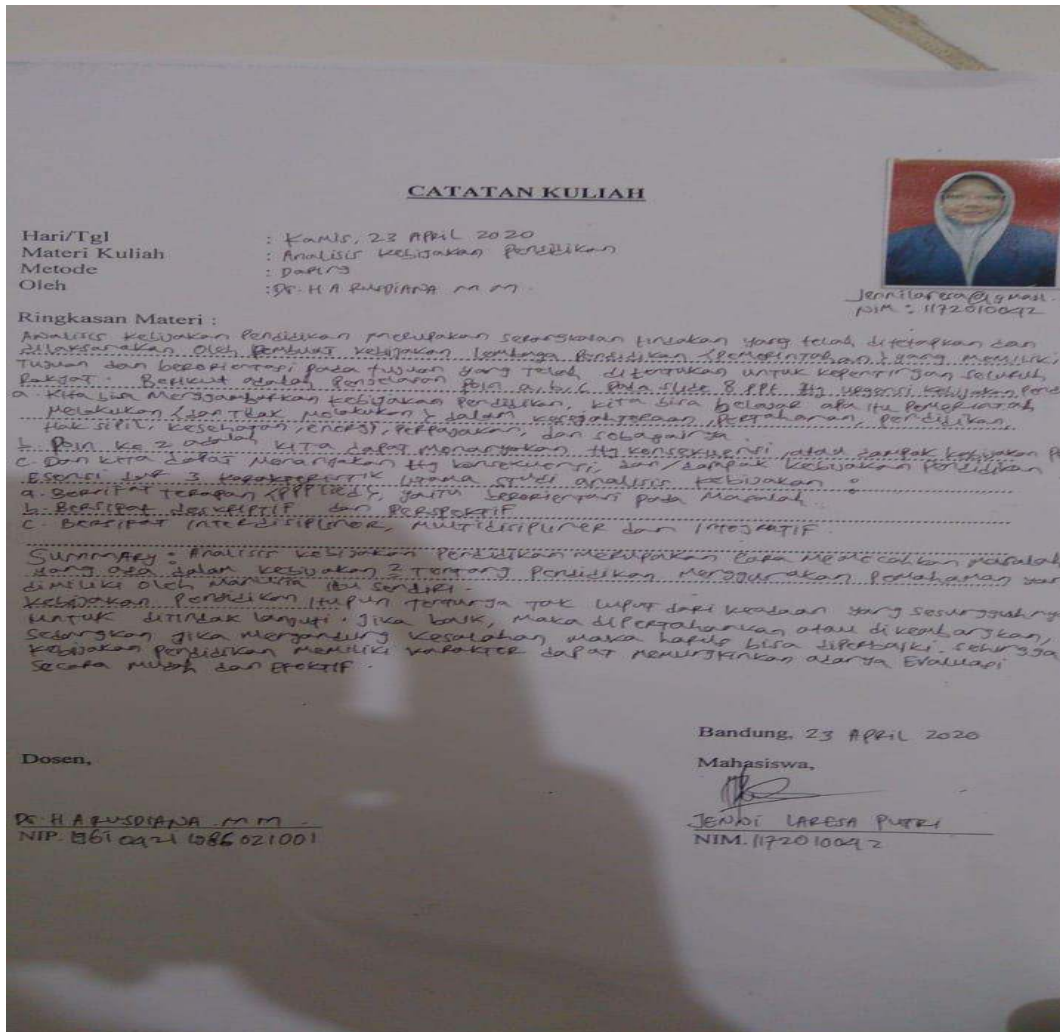 CATATAN KULIAH
Hari/Tgl : Kamis, 23 APRIL 2020
Materi Kuliah : Analisis Kebijakan Pendidikan
Metode : Daring
Oleh : Dr. H A RUSDIANA M M.
Jennilaresa@gmail.
NIM : 1172010042
Ringkasan Materi :
Analisis Kebijakan Pendidikan merupakan serangkaian tindakan yang telah ditetapkan dan
dilaksanakan oleh pembuat kebijakan lembaga pendidikan (pemerintahan) yang memiliki
Tujuan dan berorientasi pada tujuan yang telah ditentukan untuk kepentingan seluruh
Rakyat. Berikut adalah penjelasan poin a, b, c pada slide 8 PPt ttg urgensi kebijakan pend
a. Kita bisa menggambarkan kebijakan pendidikan, kita bisa belajar apa itu pemerintah
melakukan (dan tidak melakukan) dalam kesejahteraan, pertahanan, pendidikan,
Hak sipil, kesehatan, energi, perpajakan, dan sebagainya.
b. Poin ke 2 adalah kita dapat menanyakan ttg konsekuensi, atau dampak kebijakan P
c. Dan kita dapat menanyakan ttg konsekuensi, dan/dampak kebijakan pendidikan
Esensi dar 3 karakteristik utama studi analisis kebijakan :
a. Bersifat terapan, yaitu berorientasi pada Masalah
b. Bersifat deskriptif dan perspektif
c. Bersifat interdisipliner, multidisipliner dan integratif
Summary : Analisis kebijakan pendidikan merupakan cara memecahkan masalah
yang ada dalam kebijakan2 tentang pendidikan menggunakan pemahaman yan
dimiliki oleh manusia itu sendiri.
Kebijakan pendidikan itupun tentunya tak luput dari keadaan yang sesungguhny
untuk ditindak lanjuti. Jika baik, maka dipertahankan atau dikembangkan,
sedangkan jika mengandung kesalahan maka harus bisa diperbaiki. Sehingga
kebijakan pendidikan memiliki karakter dapat memungkinkan adanya Evaluasi
secara mudah dan efektif.
Bandung, 23 APRIL 2020
Dosen,
Mahasiswa,
Dr. H A RUSDIANA M M.
JENNI LARESA PUTRI
NIP. 19610421 1986 021001
NIM. 1172010042